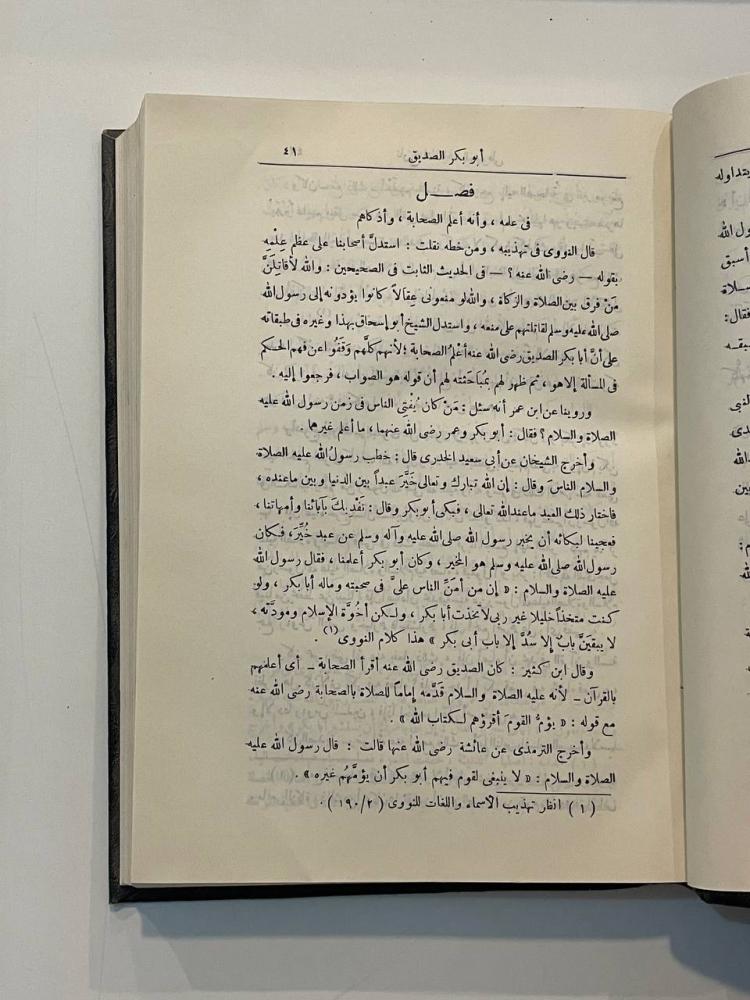 أبو بكر الصديق ٤١
فصــل
فى علمه ، وأنه أعلم الصحابة ، وأذكاهم
قال النووى فى تهذيبه ، ومن خطه نقلت : استدلَّ أصحابنا على عظم عِلْمِهِ
بقوله — رضى الله عنه ؟ — فى الحديث الثابت فى الصحيحين : والله لأقاتِلَنَّ
مَنْ فرق بين الصلاة والزكاة ، والله لو منعونى عِقالاً كانوا يؤدونه إلى رسول الله
صلى الله عليه وسلم لقاتلتهم على منعه ، واستدل الشيخ أبو إسحاق بهذا وغيره فى طبقاته
على أنَّ أبا بكر الصديق رضى الله عنه أعْلمُ الصحابة ؛ لأنهم كلَّهم وَقَفُوا عن فهم الحكم
فى المسألة إلا هو ، ثم ظهر لهم بمُبَاحَثته لهم أن قوله هو الصواب ، فرجعوا إليه .
وروينا عن ابن عمر أنه سئل : مَنْ كان يُفْتِى الناس فى زمن رسول الله عليه
الصلاة والسلام ؟ فقال : أبو بكر وعمر رضى الله عنهما ، ما أعلم غيرهما .
وأخرج الشيخان عن أبى سعيد الخدرى قال : خطب رسولُ الله عليه الصلاة
والسلام الناسَ وقال : إن الله تبارك وتعالى خَيَّرَ عبداً بين الدنيا وبين ما عنده ،
فاختار ذلك العبد ما عند الله تعالى ، فبكى أبو بكر وقال : نَفْدِيكَ بآبائنا وأمهاتنا ،
فعجبنا لبكائه أن يخبر رسول الله صلى الله عليه وآله وسلم عن عبد خُيِّرَ ، فكان
رسول الله صلى الله عليه وسلم هو المخير ، وكان أبو بكر أعلمنا ، فقال رسول الله
عليه الصلاة والسلام : « إن من أمَنِّ الناس علىَّ فى صحبته وماله أبا بكر ، ولو
كنت متخذاً خليلا غير ربى لاتخذت أبا بكر ، ولكن أخُوَّة الإسلام ومودَّته ،
لا يبقيَنَّ بابٌ إلا سُدَّ إلا باب أبى بكر » هذا كلام النووى (١) .
وقال ابن كثير : كان الصديق رضى الله عنه أقرأ الصحابة ــ أى أعلمهم
بالقرآن ــ لأنه عليه الصلاة والسلام قَدَّمه إماماً للصلاة بالصحابة رضى الله عنه
مع قوله : « يؤمُّ القومَ أقرؤهم لكتاب الله » .
وأخرج الترمذى عن عائشة رضى الله عنها قالت : قال رسول الله عليه
الصلاة والسلام : « لا ينبغى لقوم فيهم أبو بكر أن يؤمَّهُم غيره » .
( ١ ) انظر تهذيب الأسماء واللغات للنووى ( ١٩٠/٢ ) .